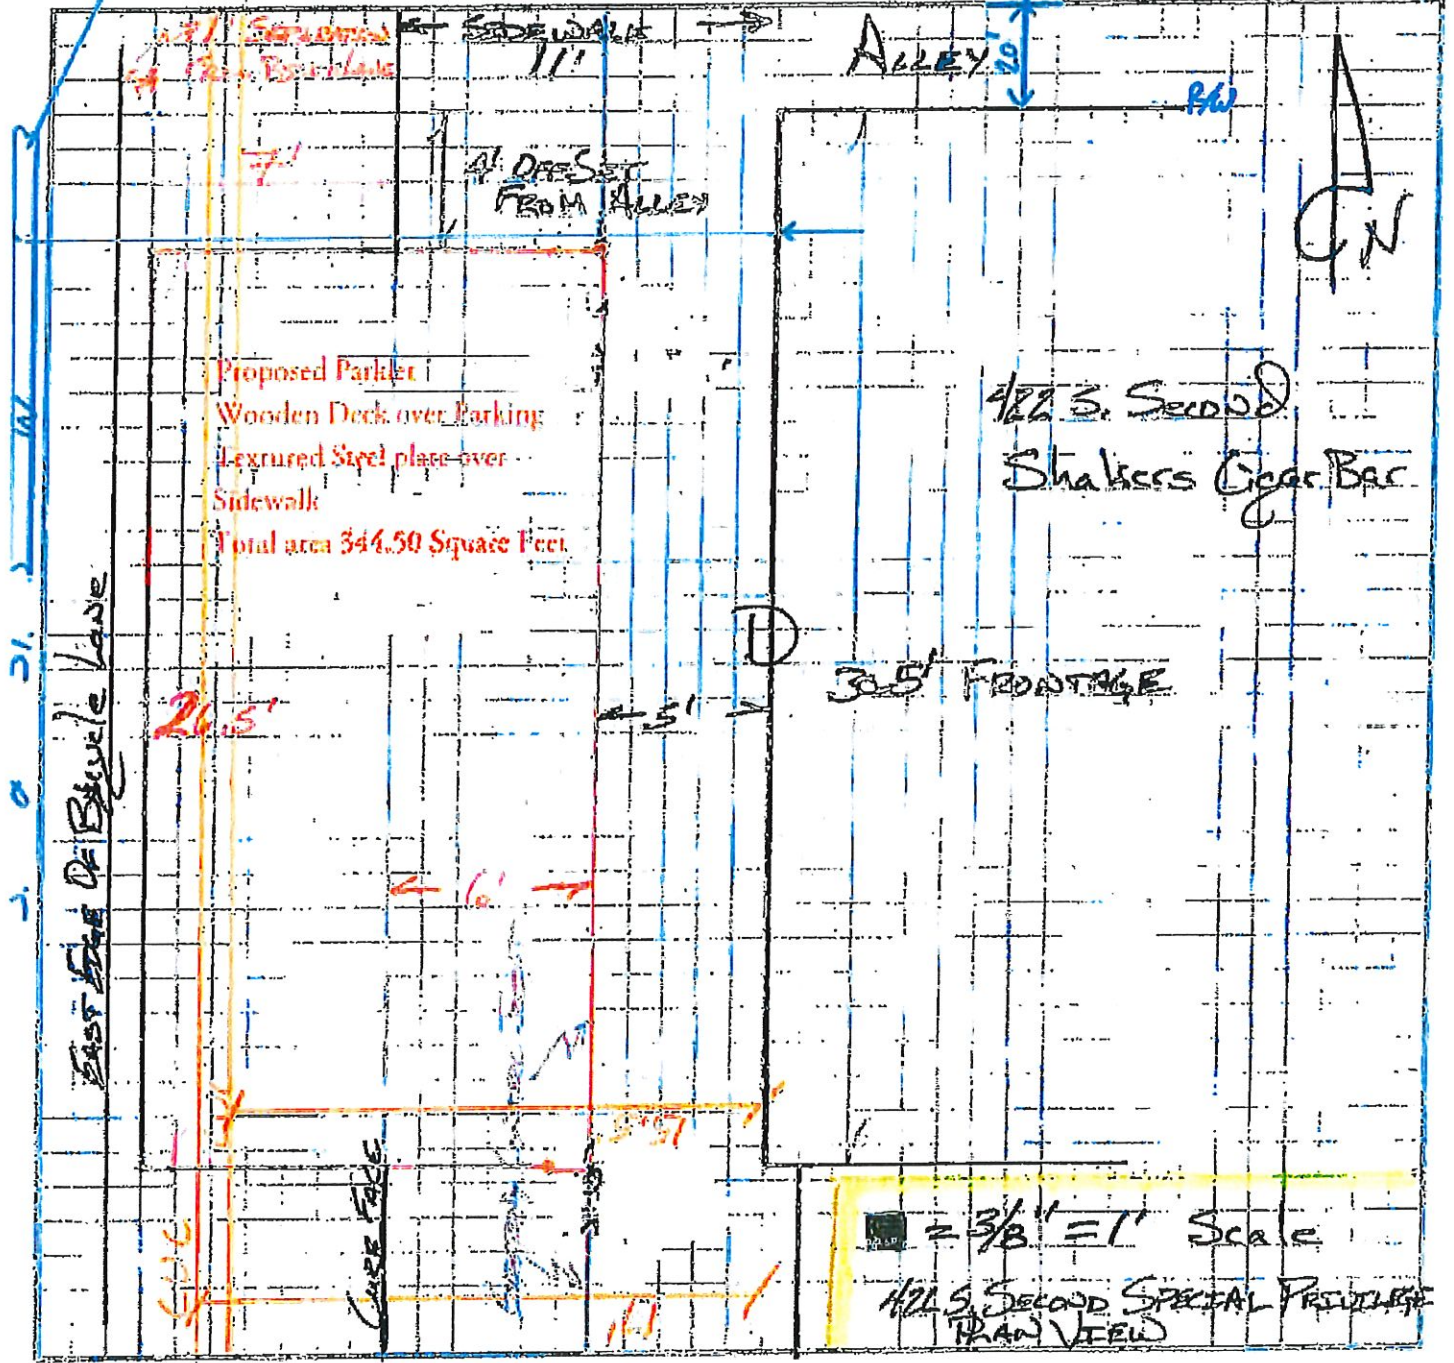 SIDEWALK
11'
ALLEY
20'
R/W
7'
4' OFFSET
FROM ALLEY
N
Proposed Parklet
Wooden Deck over Parking
Textured Steel plate over
Sidewalk
Total area 344.50 Square Feet
422 S. Second
Shakers Cigar Bar
EAST EDGE OF Bicycle Lane
26.5'
5'
30.5' FRONTAGE
6'
CURB FACE
= 3/8" = 1' Scale
422 S. SECOND SPECIAL PRIVILEGE
PLAN VIEW